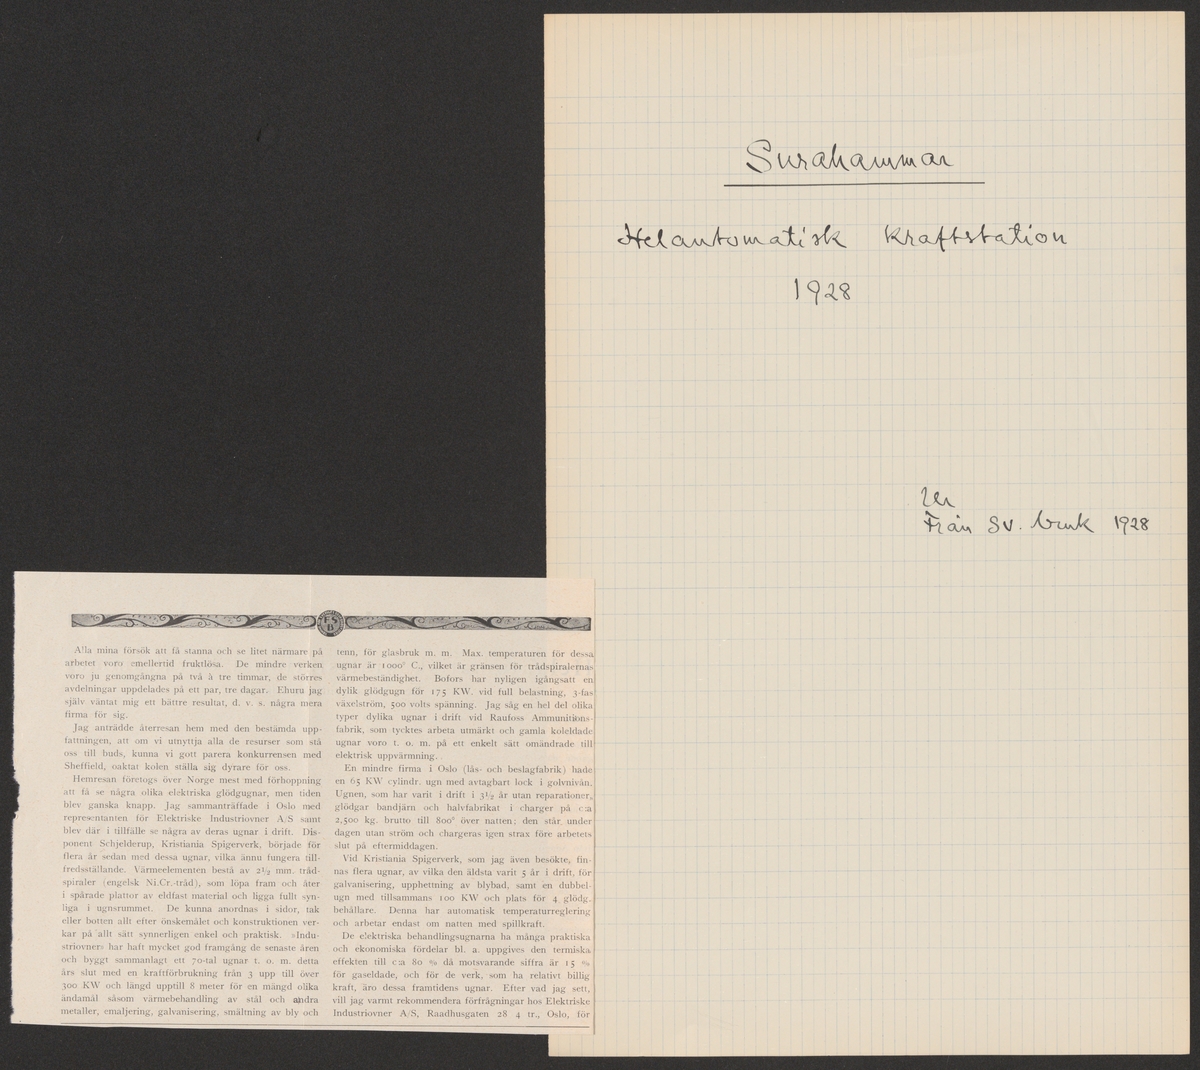 Surahammar
Helautomatisk kraftstation
1928
Från Sv. bruk 1928
Alla mina försök att få stanna och se litet närmare på
arbetet voro emellertid fruktlösa. De mindre verken
voro ju genomgångna på två à tre timmar, de störres
avdelningar uppdelades på ett par, tre dagar. Ehuru jag
själv väntat mig ett bättre resultat, d. v. s. några mera
firma för sig.
Jag anträdde återresan hem med den bestämda upp-
fattningen, att om vi utnyttja alla de resurser som stå
oss till buds, kunna vi gott parera konkurrensen med
Sheffield, oaktat kolen ställa sig dyrare för oss.
Hemresan företogs över Norge mest med förhoppning
att få se några olika elektriska glödgugnar, men tiden
blev ganska knapp. Jag sammanträffade i Oslo med
representanten för Elektriske Industriovner A/S samt
blev där i tillfälle se några av deras ugnar i drift. Dis-
ponent Schjelderup, Kristiania Spigerverk, började för
flera år sedan med dessa ugnar, vilka ännu fungera till-
fredsställande. Värmeelementen bestå av 2½ mm. tråd-
spiraler (engelsk Ni.Cr.-tråd), som löpa fram och åter
i spårade plattor av eldfast material och ligga fullt syn-
liga i ugnsrummet. De kunna anordnas i sidor, tak
eller botten allt efter önskemålet och konstruktionen ver-
kar på allt sätt synnerligen enkel och praktisk. »Indu-
striovner» har haft mycket god framgång de senaste åren
och byggt sammanlagt ett 70-tal ugnar t. o. m. detta
års slut med en kraftförbrukning från 3 upp till över
300 KW och längd upptill 8 meter för en mängd olika
ändamål såsom värmebehandling av stål och andra
metaller, emaljering, galvanisering, smältning av bly och
tenn, för glasbruk m. m. Max. temperaturen för dessa
ugnar är 1000° C., vilket är gränsen för trådspiralernas
värmebeständighet. Bofors har nyligen igångsatt en
dylik glödgugn för 175 KW. vid full belastning, 3-fas
växelström, 500 volts spänning. Jag såg en hel del olika
typer dylika ugnar i drift vid Raufoss Ammunitions-
fabrik, som tycktes arbeta utmärkt och gamla koleldade
ugnar voro t. o. m. på ett enkelt sätt omändrade till
elektrisk uppvärmning.
En mindre firma i Oslo (lås- och beslagfabrik) hade
en 65 KW cylindr. ugn med avtagbart lock i golvnivån.
Ugnen, som har varit i drift i 3½ år utan reparationer,
glödgar bandjärn och halvfabrikat i charger på c:a
2,500 kg. brutto till 800° över natten; den står under
dagen utan ström och chargeras igen strax före arbetets
slut på eftermiddagen.
Vid Kristiania Spigerverk, som jag även besökte, fin-
nas flera ugnar, av vilka den äldsta varit 5 år i drift, för
galvanisering, upphettning av blybad, samt en dubbel-
ugn med tillsammans 100 KW och plats för 4 glödg.
behållare. Denna har automatisk temperaturreglering
och arbetar endast om natten med spillkraft.
De elektriska behandlingsugnarna ha många praktiska
och ekonomiska fördelar bl. a. uppgives den termiska
effekten till c:a 80 % då motsvarande siffra är 15 %
för gaseldade, och för de verk, som ha relativt billig
kraft, äro dessa framtidens ugnar. Efter vad jag sett,
vill jag varmt rekommendera förfrågningar hos Elektriske
Industriovner A/S, Raadhusgaten 28 4 tr., Oslo, för